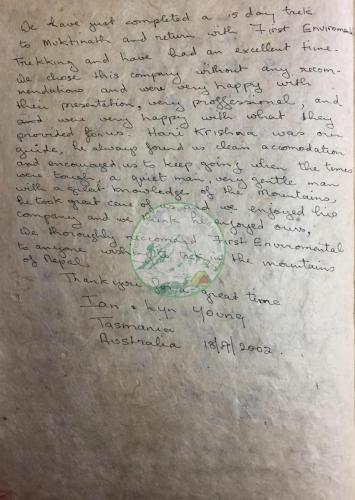 We have just completed a 15 day trek
to Muktinath and return with First Enviroment
Trekking and have had an excellent time.
We chose this company without any recom-
mendations and were very happy with
their presentation, very proffessional, and
and were very happy with what they
provided for us. Hari Krishna was our
guide, he always found us clean accomodation
and encouraged us to keep going when the times
were tough, a quiet man, very gentle man
with a great knowledge of the mountains,
he took great care of and we enjoyed his
company and we think he enjoyed ours,
We thoroughly reccomend First Enviromental
to anyone trek in the mountains
of Nepal.
Thank you great time
Ian & Lyn Young
Tasmania
Australia 2002.